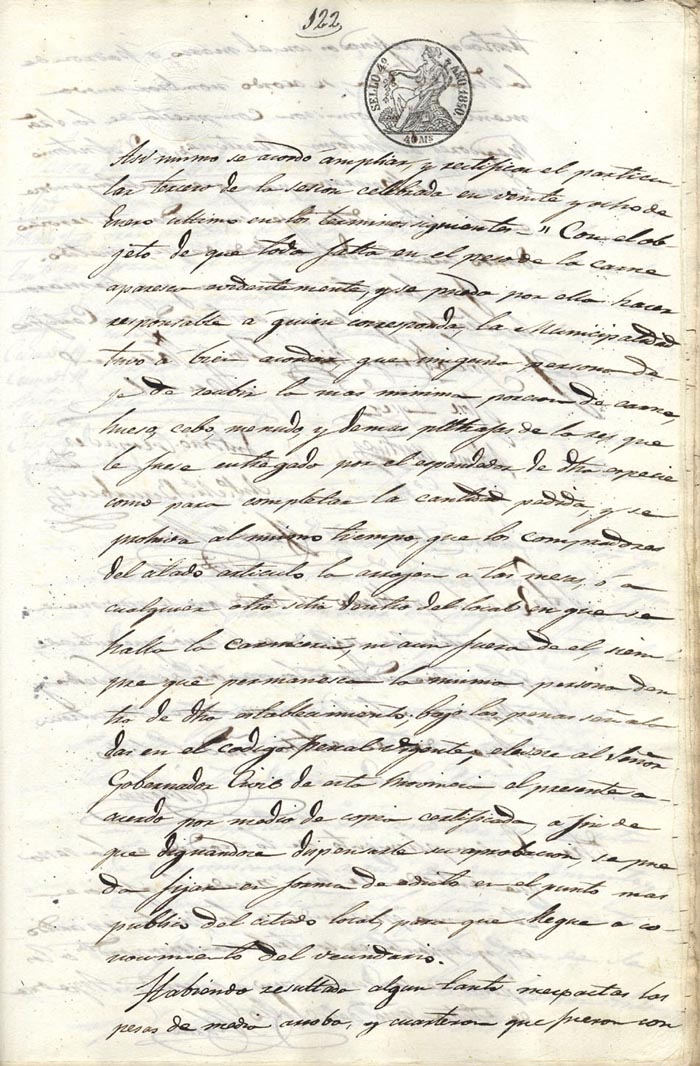 122
SELLO 4º AÑO 1850.
40 Ms
Asi mismo se acordó ampliar, y rectificar el particu-
lar tercero de la sesion celebrada en veinte y ocho de
Enero ultimo en los terminos siguientes= " Con el ob-
jeto de que toda falta en el peso de la carne
aparesca evidentemente, y se pueda por ella hacer
responsable á quien corresponda, la Municipalidad
tuvo á bien acordar que ninguna persona de-
je de recibir la mas minima porcion de carne,
hueso, cebo, menudo, y demas de la res que
le fuese entregado por el espendedor de dha especie
como para completar la cantidad pedida, y se
prohiva al mismo tiempo que los compradores
del citado articulo la arrojen a las mesas, ó a
cualquier otro sitio dentro del local en que se
halla la carniceria, ni aun fuera de el, siem-
pre que permanesca la misma persona den-
tro de dho establecimiento, bajo las penas señala-
das en el codigo Penal vigente, elevese al Señor
Gobernador Civil de esta Provincia el presente a-
cuerdo por medio de copia certificada, a fin de
que dignandose dispensarle su aprobacion, se pue-
da fijar en forma de edicto en el punto mas
publico del citado local, para que llegue a co-
nocimiento del vecindario.
Habiendo resultado algun tanto inexactas las
pesas de media arroba, y cuarteron que fueron con